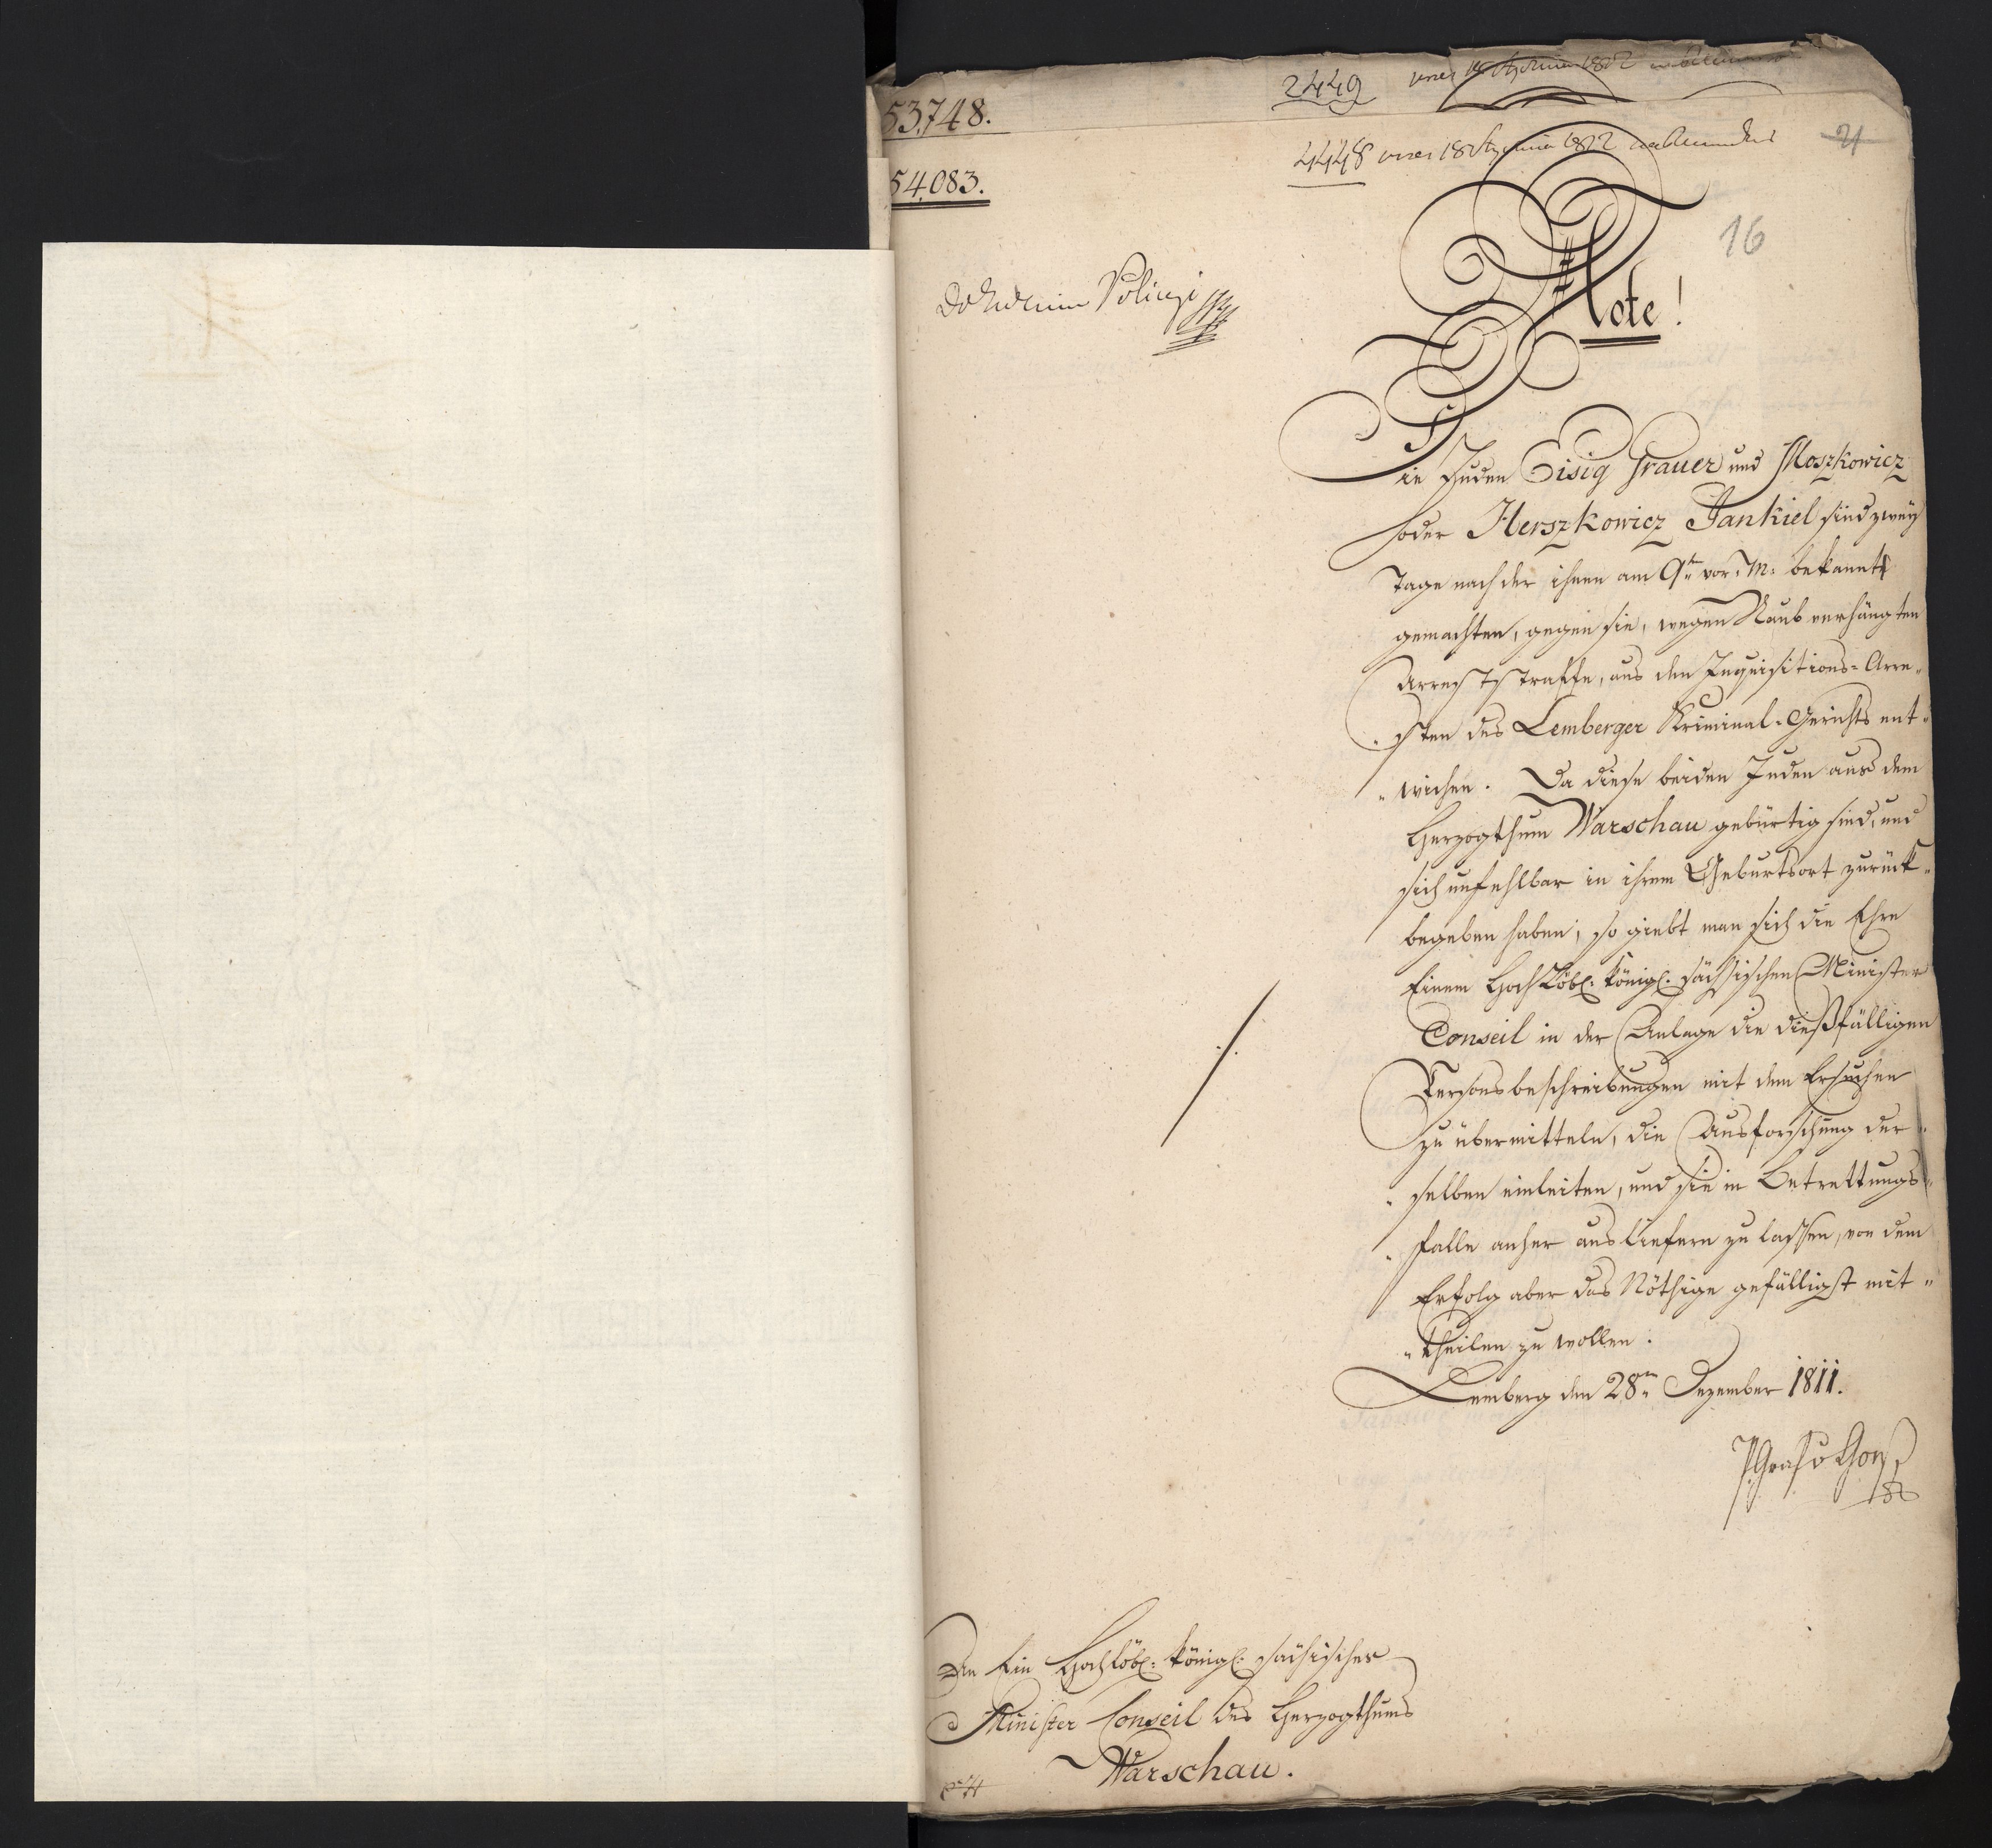 53,748.
2449
54,083.
4448 18 Stycznia 1812
21
16
Policyi
Note!
Die Juden Eisig Grauer und Moszkowicz
oder Herszkowicz Jankiel sind zwey
Tage nach der ihnen am 9tn vor. M: bekannt
gemachten, gegen sie, wegen Raub verhängten
Arrestsstraffe, aus den Inquisitions-Arre„
„sten des Lemberger Kriminal-Gerichts ent„
„wichen. Da diese beiden Juden aus dem
Herzogthum Warschau gebürtig sind, und
sich unfehlbar in ihrem Geburtsort zurück„
begeben haben; so giebt man sich die Ehre
Einem Hochlöbl: königl: sächsischen Minister
Conseil in der Anlage die dießfälligen
Personsbeschreibungen mit dem Ersuchen
zu übermitteln, die Ausforschung der„
„selben einleiten, und sie in Betrettungs„
„falle anher ausliefern zu lassen, von dem
Erfolg aber das Nöthige gefälligst mit„
„theilen zu wollen.
Lemberg den 28tn Dezember 1811.
P. Graf v Goess
An Ein Hochlöbl: königl: sächsisches
Minister Conseil des Herzogthums
Warschau.